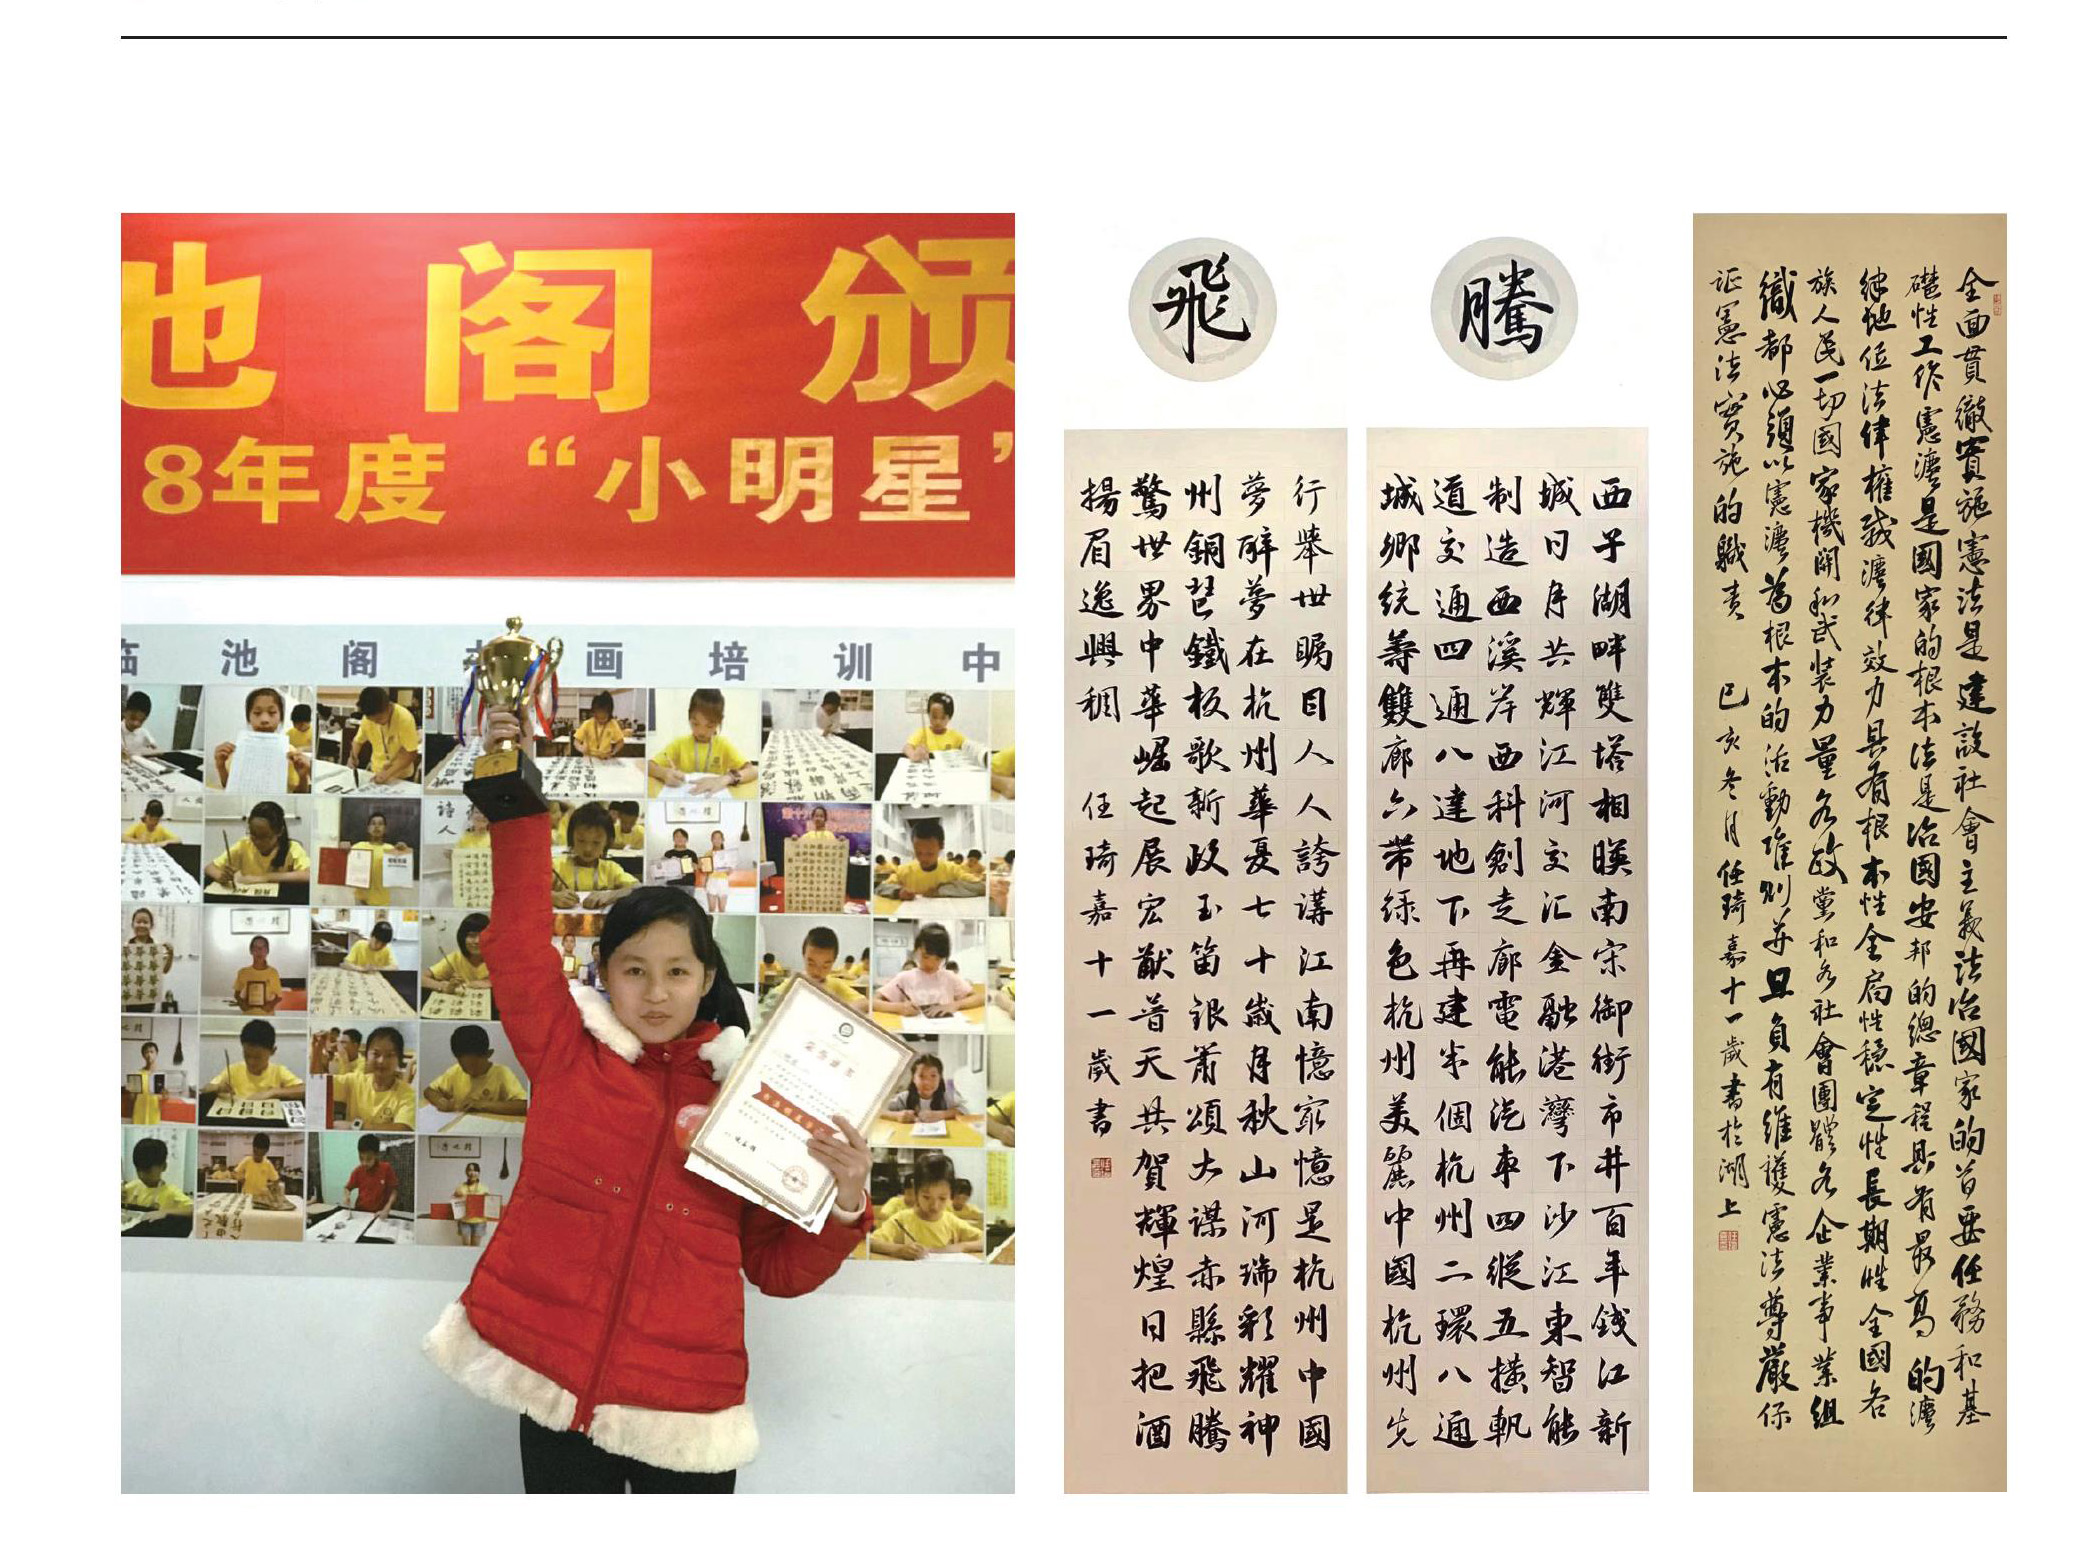 池阁颁
8年度“小明星”
临池阁书画培训中
飛騰
西子湖畔雙塔相映南宋御街市井百年錢江新
城日月共輝江河交汇金融港灣下沙江東智能
制造西溪岸西科創走廊電能汽車四縱五橫軌
道交通四通八達地下再建半個杭州二環八通
城鄉統籌雙廊六帶绿色杭州美麗中國杭州先
行舉世矚目人人誇講江南憶冣憶是杭州中國
夢醉夢在杭州華夏七十歲月秋山河瑞彩耀神
州銅琶鐵板歌新政玉笛銀蕭頌大謀赤縣飛騰
驚世界中華崛起展宏猷普天共賀輝煌日把酒
揚眉逸興稠 任琦嘉十一歲書
全面貫徹實施憲法是建設社會主義法治國家的首要任務和基
礎性工作憲灋是國家的根本法是治國安邦的總章程具有最高的灋
律地位法律權威灋律效力具有根本性全局性穩定性長期性全國各
族人民一切國家機關和武裝力量各政黨和各社會團體各企業事業組
織都必須以憲灋為根本的活動准則并且負有維護憲法尊嚴保
证憲法實施的職责 己亥冬月任琦嘉十一歲書於湖上